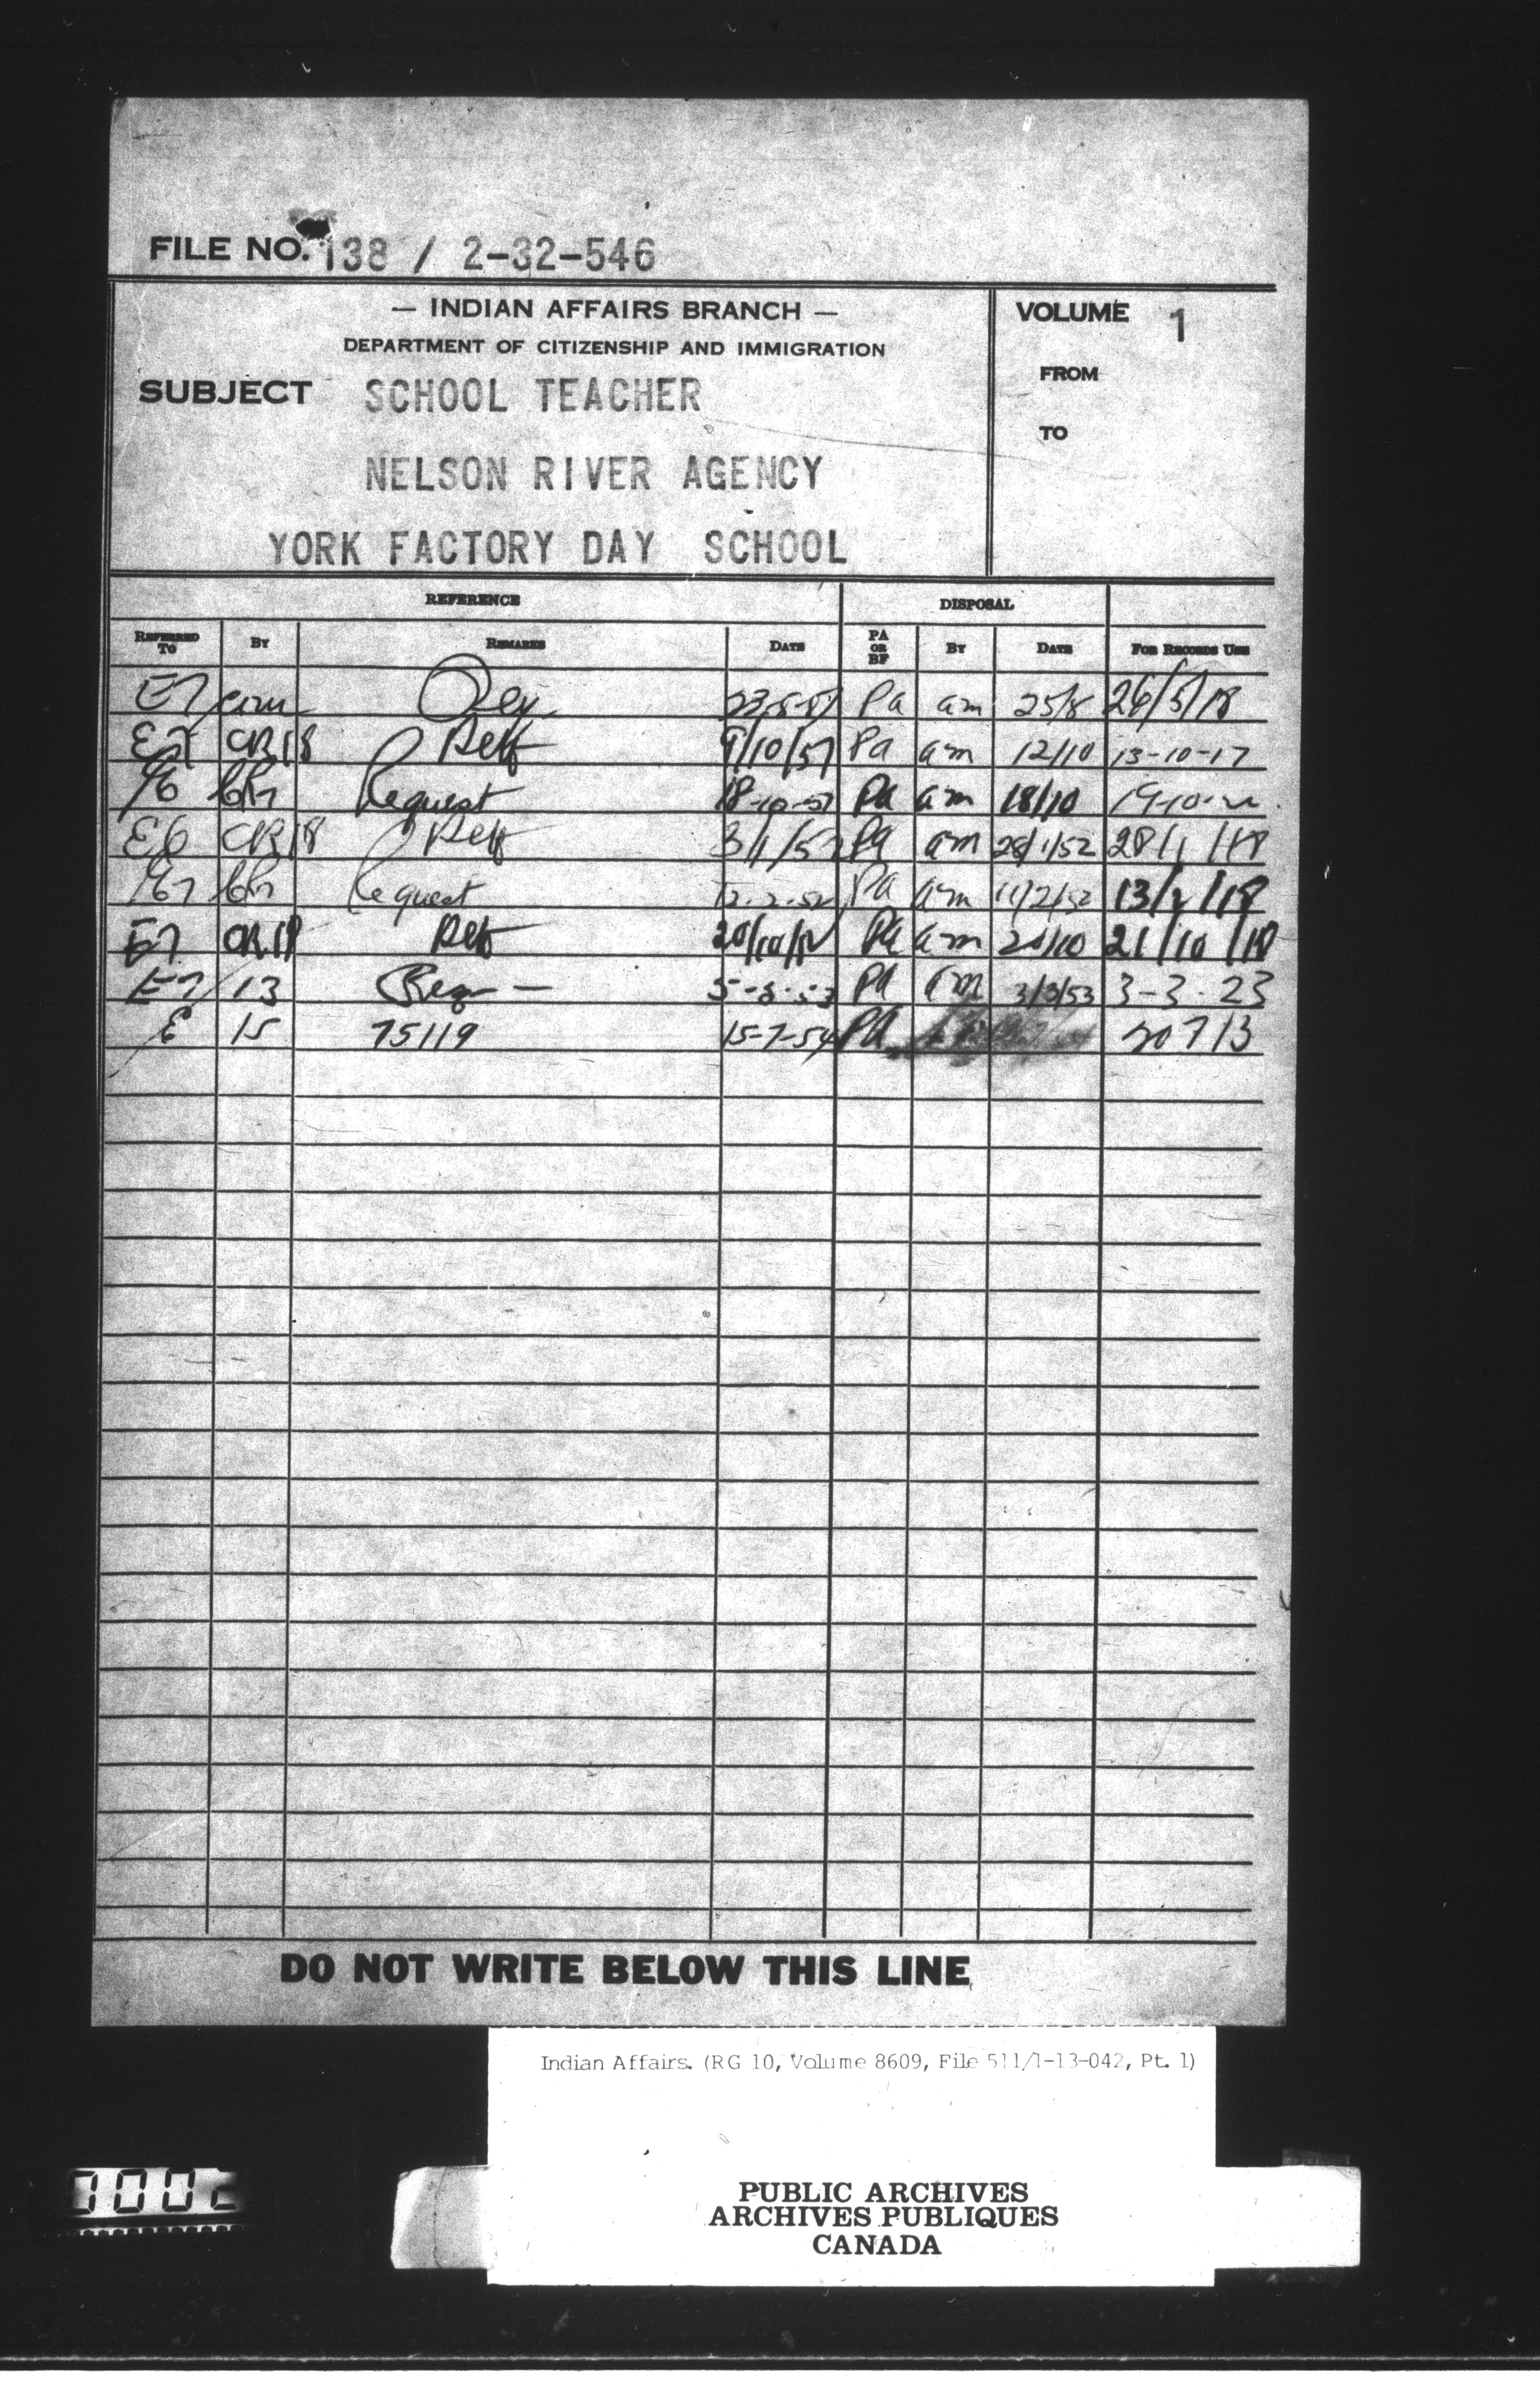 FILE NO. 138 / 2-32-546
— INDIAN AFFAIRS BRANCH —
DEPARTMENT OF CITIZENSHIP AND IMMIGRATION
SUBJECT SCHOOL TEACHER
NELSON RIVER AGENCY
YORK FACTORY DAY SCHOOL
VOLUME 1
FROM
TO
REFERENCE DISPOSAL
REFERRED TO BY REMARKS DATE PA OR BF BY DATE FOR RECORDS USE
E7 Pa am 25/8
CR18 9/10/51 Pa am 12/10 13-10-17
Request 18-10-51 Pa am 18/10
E6 CR18 Pa am 28/1/52 28/1/18
Request 12.2.52 Pa am 11/2/52 13/2/18
E7 CR18 Pa am 21/10/18
E7 13 PA am 3/3/53 3-3-23
E 15 75119 15-7-54 PA 20 7 13
DO NOT WRITE BELOW THIS LINE
Indian Affairs. (RG 10, Volume 8609, File 511/1-13-042, Pt. 1)
PUBLIC ARCHIVES
ARCHIVES PUBLIQUES
CANADA